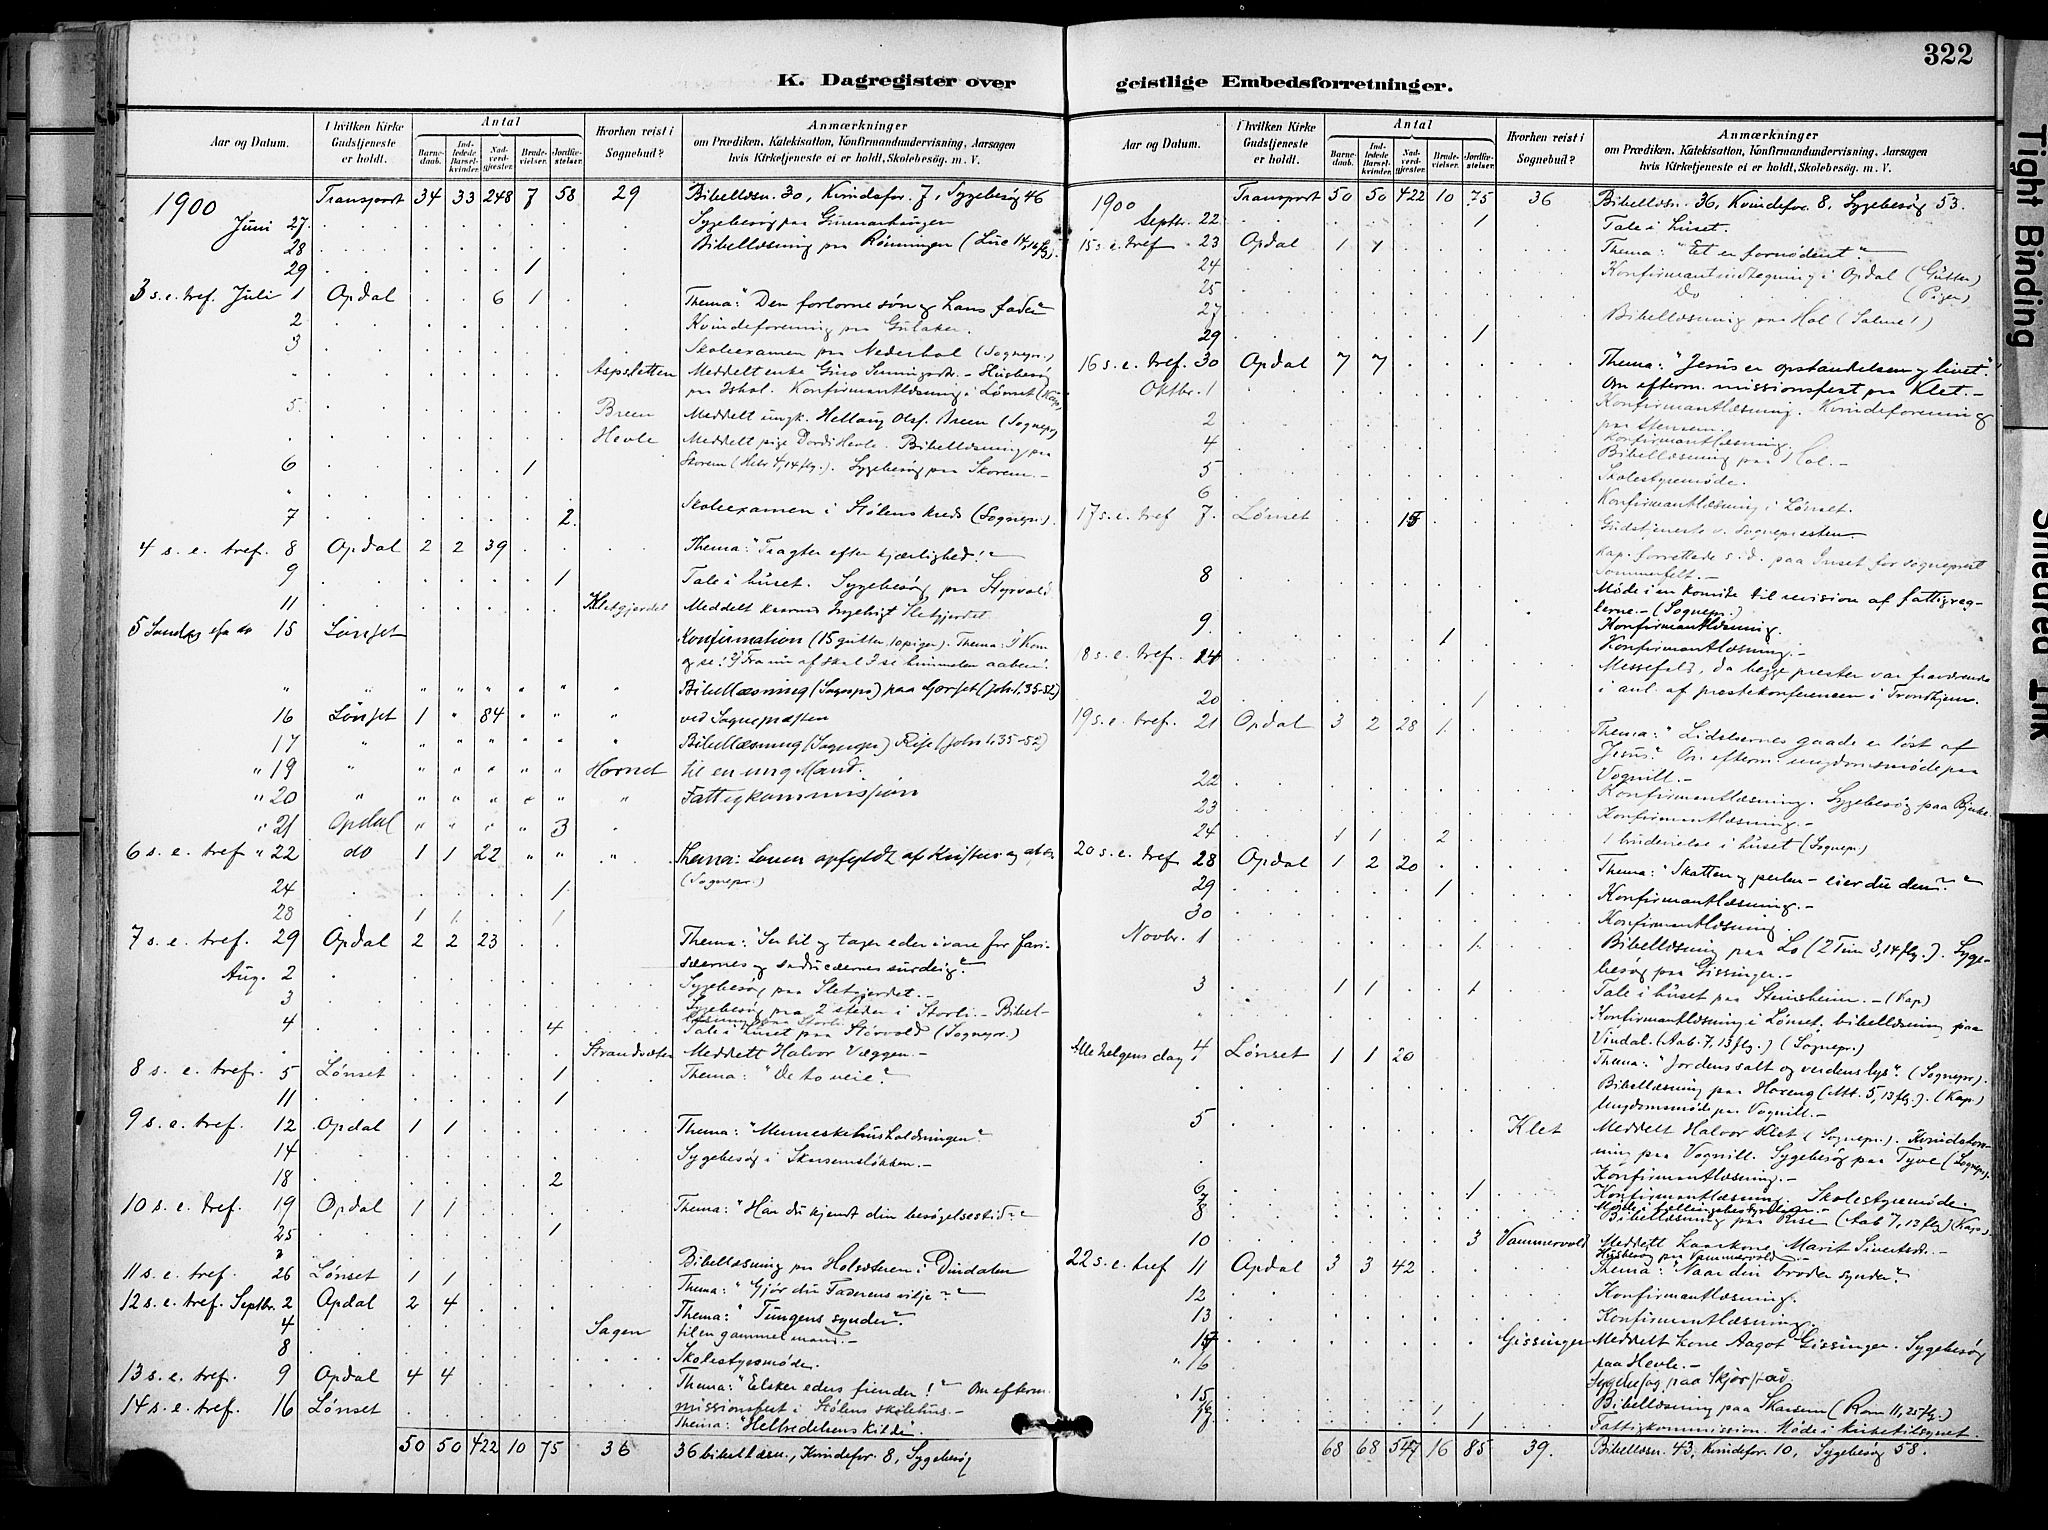 322
K. Dagregister over geistlige Embedsforretninger.
Aar og Datum. I hvilken Kirke Gudstjeneste er holdt. Antal Barnedaab. Indledede Barselkvinder. Nadverdgjester. Brudevielser. Jordfæstelser. Hvorhen reist i Sognebud? Anmærkninger om Prædiken, Katekisation, Konfirmandundervisning, Aarsagen hvis Kirketjeneste ei er holdt, Skolebesøg. m. V.
1900 Transport 34 33 248 7 58 29 Bibellæsn. 30, Kvindefor. 7, Sygebesøg 46
Juni 27. Sygebesøg paa
28 Bibellæsning paa Rønningen (Luc 14,16 flg).
29 1
3 s. e. tref. Juli 1 Opdal 6 1 Thema: "Den fortorne søn og hans fader"
2 Kvindeforening paa Gulaker.
3 Skoleexamen paa Nederhol (Sognepr.)
" Aspsletten Meddelt enke - Husbesøg
paa Ishol. Konfirmantlæsning i Lønset (Kap)
5. Breen Meddelt ungk. Hellaug Olsf. Breen (Sognepr)
Hevle Meddelt pige Dordi Hevle. Bibellæsning paa
6 1 Skorem (Hebr 4,14 flg.). Sygebesøg paa Skorem. -
"
7 2. Skoleexamen i Stølens kreds (Sognepr).
4 s. e. tref. 8 Opdal 2 2 39 Thema: "Tragter efter kjærlighed!"
9 1 Tale i huset. Sygebesøg paa Styrvold
11 Kletgjerdet Meddelt
5 Søndag efter do 15 Lønset Konfirmation (15 gutter 10 piger). Thema: 1) Kom
og se! 2) Fra nu af skal I se himmelen aaben!
" " " " " " " " Bibellæsning (Sognepr) paa Gorset (Joh 1,35-52)
16 Lønset 1 " 84 " " " ved Sognepræsten
17 " " " " " " " Bibellæsning (Sognepr) Rise (Joh 1,35-52)
" 19 " " " " " " Hornet til en ung Mand.
" 20 " " " " " " " Fattigkommission
" 21 Opdal " " " " 3 "
6 s. e. tref " 22 do 1 1 22 " " " Thema: Loven opfyldt af Kristus og
24 1 (Sognepr.)
28 1 1 1
7 s. e. tref. 29 Opdal 2 2 23 Thema: "Se til og tager eder i vare for fari-
sæernes og saducæernes surdeig."
Aug. 2 Sygebesøg paa Sletgjerdet. -
3 Sygebesøg paa 2 steder i Storli. - Bibel-
læsning paa Storli
4 4 Tale i huset paa Størvold (Sognepr.)
Strandsæter Meddelt Halvor Væggen. -
8 s. e. tref. 5 Lønset 1 Thema: "De to veie".
11 1
9 s. e. tref. 12 Opdal 1 1 Thema: "Menneskehusholdningen".
14 Sygebesøg i Skarsemsløkken. -
18 2
10 s. e. tref. 19 Opdal 1 1 Thema: "Har du kjendt din besøgelsestid?"
25 1
" Bibellæsning paa Holsæteren i Dindalen
11 s. e. tref. 26 Lønset 1 1 Thema: "Gjør du Faderens vilje?"
12 s. e. tref. Septbr. 2 Opdal 2 4 Thema: "Tungens synder".
4 Sagen til en gammel mand. -
8 Skolestyrsmøde.
13 s. e. tref. 9 Opdal 4 4 Thema: "Elsker eders fiender!" Om efterm.
missionsfest i Stølens skolehus. -
14 s. e. tref. 16 Lønset Thema: "Helbredelsens kilde".
50 50 422 10 75 36 36 bibellæsn., Kvindefor. 8, Sygebesøg
Aar og Datum. I hvilken Kirke Gudstjeneste er holdt. Antal Barnedaab. Indledede Barselkvinder. Nadverdgjester. Brudevielser. Jordfæstelser. Hvorhen reist i Sognebud? Anmærkninger om Prædiken, Katekisation, Konfirmandundervisning, Aarsagen hvis Kirketjeneste ei er holdt, Skolebesøg. m. V.
1900 Transport 50 50 422 10 75 36 Bibellæsn. 36, Kvindefor. 8, Sygebesøg 53.
Septbr. 22 1 Tale i huset.
15 s. e. tref 23 Opdal 1 1 Thema: "Et er fornødent".
24 Konfirmantindtagning i Opdal (Gutter)
25 Do (Piger)
27 Bibellæsning paa Hol (Salme 1)
29 1
16 s. e. tref. 30 Opdal 7 7 Thema: "Jesus er opstandelsen og livet".
Om efterm. missionsfest paa Klet. -
Oktbr. 1 Konfirmantlæsning. Kvindeforening
2 paa Stensem.
4 Konfirmantlæsning.
Bibellæsning paa Hol. -
5 Skolestyremøde.
6 Konfirmantlæsning i Lønset.
17 s. e. tref 7. Lønset 15 Gudstjeneste v. Sognepresten
Kap. forrettede s. d. paa Inset for sogneprest
8 Sommerfelt. -
Møde i en komite til revision af fattigreg-
lerne. - (Sognepr.)
9. 1 Konfirmantlæsning.
Konfirmantlæsning. -
18 s. e. tref. 14 Messefald, da begge prester var fraværende
20 1 i anl. af prestekonferencen i Trondhjem.
19 s. e. tref. 21 Opdal 3 2 28 1. Thema: "Lidelsernes gaade er løst af
Jesus". Om efterm. ungdomsmøde paa
22 Vognill. -
Konfirmantlæsning. Sygebesøg paa Bjerke.
23 Konfirmantlæsning. -
24 1 1 2 1 brudevielse i huset (Sognepr.)
20 s. e. tref 28 Opdal 1 2 20 Thema: "Skatten og perlen - eier du dem?"
29 1 Konfirmantlæsning. -
30 Konfirmantlæsning.
Novbr. 1 1. Bibellæsning paa Lo (2 Tim 3,14 flg.). Syge-
besøg paa Gissinger. -
3 1 1 1 Tale i huset paa Steinsheim. - (Kap)
Konfirmantlæsning i Lønset, bibellæsning paa
Vindal. (Aab. 7,13 flg.) (Sognepr.)
Alle helgens dag 4 Lønset 1 1 20 Thema: "Jordens salt og verdens lys". (Sognepr).
Bibellæsning paa Horeng (Mtt. 5,13 flg.). (Kap)
Ungdomsmøde paa Vognill. -
5 Klet Meddelt Halvor Klet (Sognepr.). Kvindefore-
ning paa Vognill. Sygebesøg paa Tyve (Sognepr).
Konfirmantlæsning. -
6 1 Konfirmantlæsning. Skolestyremøde.
7
8 Bibellæsning paa Rise (Aab 7,13 flg) (Kap).
10 3 Vammervold Meddelt kaarkone Marit Sivertsdr. -
Husbesøg paa Vammervold
22 s. e. tref 11 Opdal 3 3 42 Thema: "Naar din broder synder".
12 Konfirmantlæsning.
13 Konfirmantlæsning.
Gissinger Meddelt kone Aagot Gissinger. Sygebesøg
paa Hevle. -
" 16 Sygebesøg paa Skjørstad.
" 15 1 Bibellæsning paa Skarsem (Rom 11,25 flg.)
1 Fattigkommission. Møde i kirketilsynet.
68 68 547 16 85 39. Bibellæsn. 43, Kvindefor. 10, Sygebesøg 58.
Tight Binding
Smeared Ink